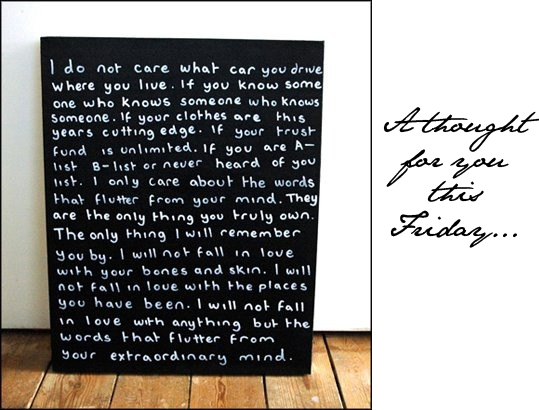 I do not care what car you drive
where you live. If you know some
one who knows someone who knows
someone. If your clothes are this
years cutting edge. If your trust
fund is unlimited. If you are A-
list B-list or never heard of you
list. I only care about the words
that flutter from your mind. They
are the only thing you truly own.
The only thing I will remember
you by. I will not fall in love
with your bones and skin. I will
not fall in love with the places
you have been. I will not fall
in love with anything but the
words that flutter from
your extraordinary mind.
A thought
for you
this
Friday...